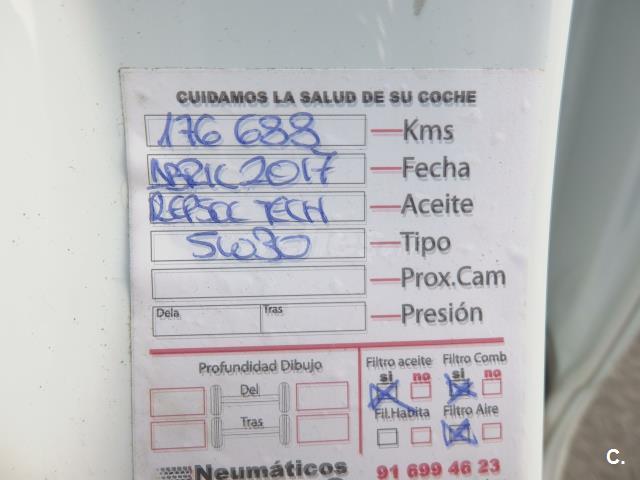 CUIDAMOS LA SALUD DE SU COCHE
176 688 Kms
ABRIL 2017 Fecha
REPSOL TECH Aceite
5W30 Tipo
Prox.Cam
Dela Tras Presión
Profundidad Dibujo
Del
Tras
Filtro aceite Filtro Comb
si no si no
Fil.Habita Filtro Aire
Neumáticos 91 699 46 23
C.